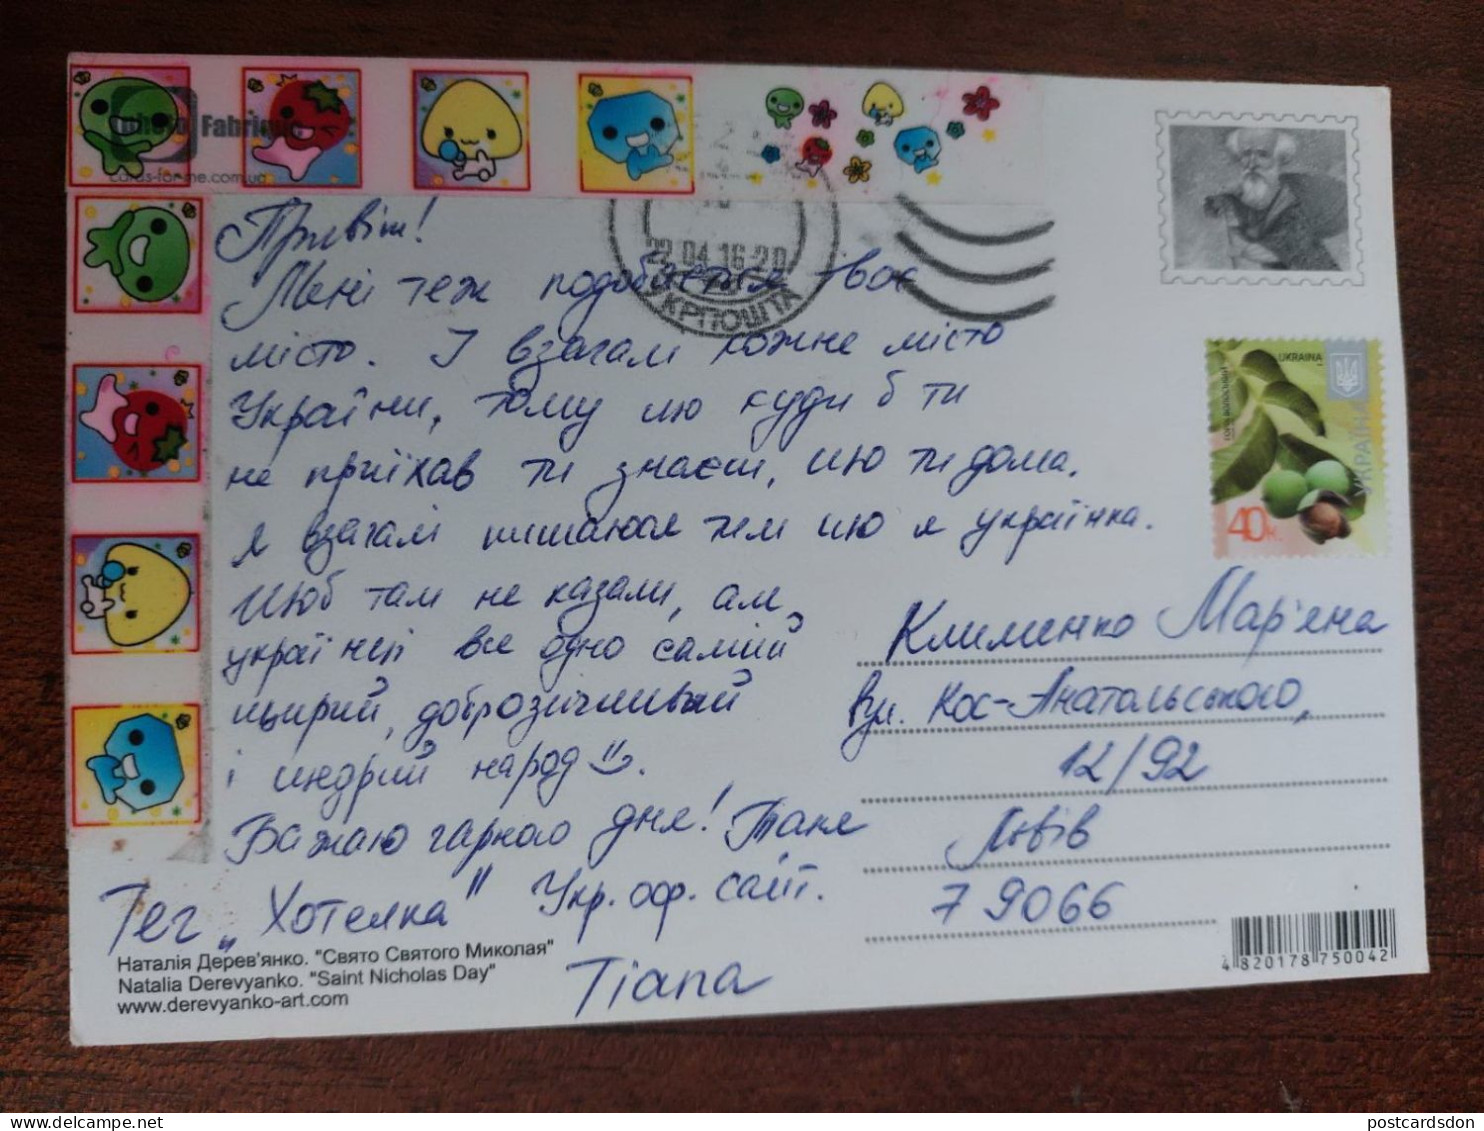 Fabrique
cards-for-me.com.ua
22 04 16 20
УКРПОШТА
Привіт!
Мені теж подобається твоє
місто. І взагалі кожне місто
України, тому що куди б ти
не приїхав ти знаєш, що ти дома.
Я взагалі пишаюся тим що я українка.
Щоб там не казали, але
українці все одно самий
щирий, доброзичливий
і щедрий народ
Бажаю гарного дня! Таня
Тег „Хотелка" Укр. оф. сайт.
Tiana
UKRAINA
УКРАЇНА
40к.
Клименко Мар'яна
вул. Кос-Анатольського,
12/92
Львів
79066
Наталія Дерев'янко. "Свято Святого Миколая"
Natalia Derevyanko. "Saint Nicholas Day"
www.derevyanko-art.com
4 820178 750042
postcardsdon